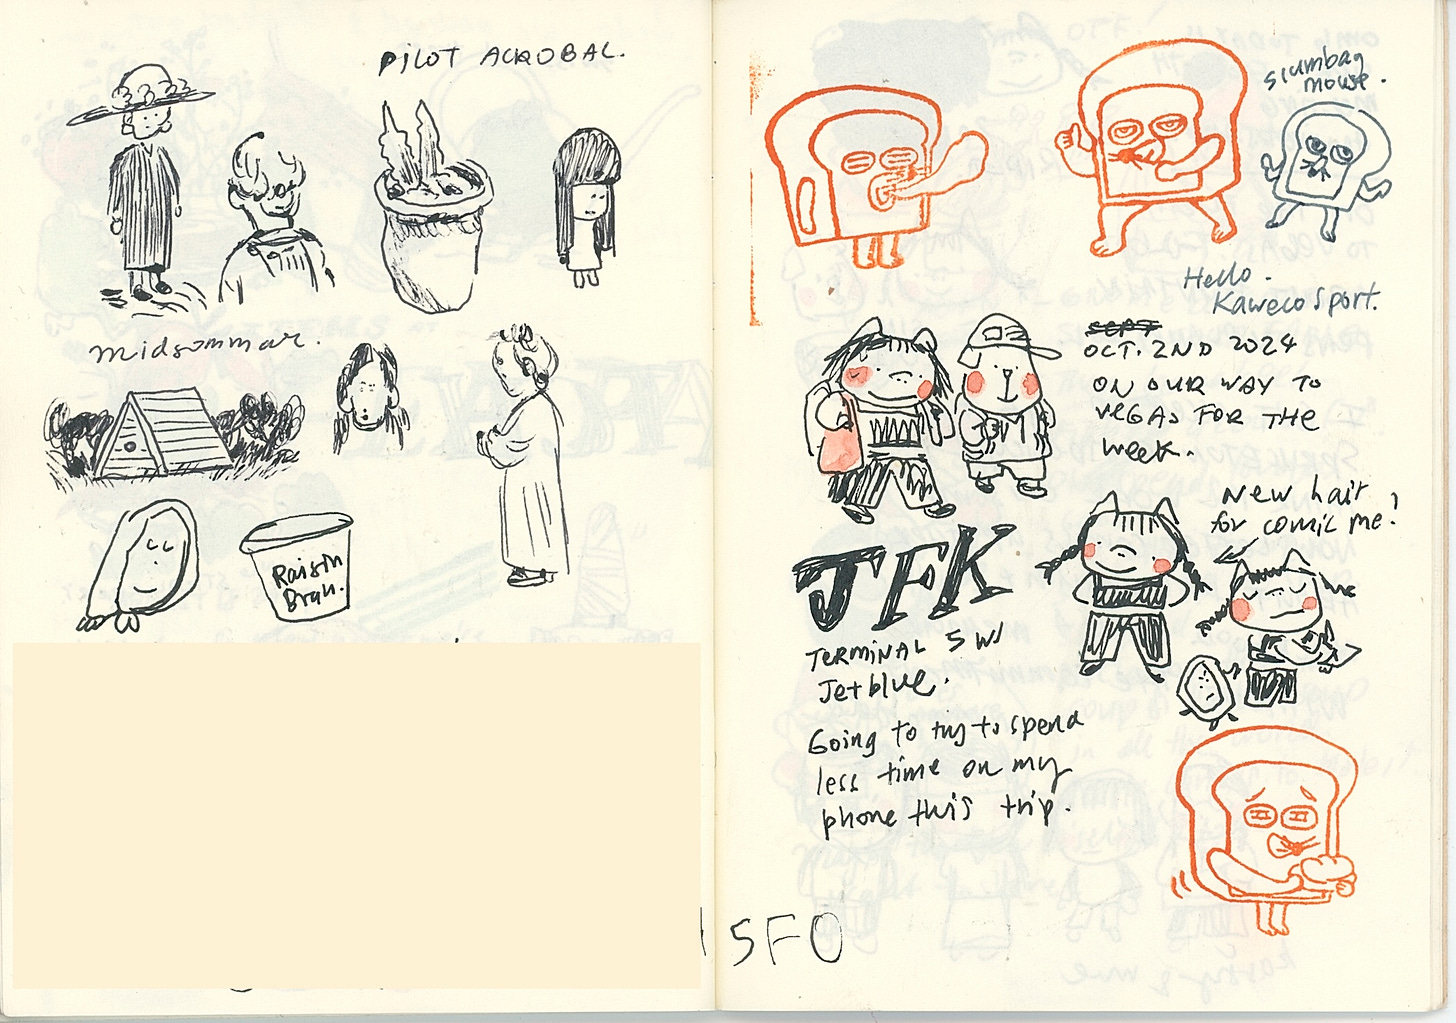 PILOT ACROBAL.
midsommar.
Raisin
Bran.
SFO
slumbag
mouse.
Hello.
Kaweco Sport.
SEPT
OCT. 2ND 2024
ON OUR WAY TO
VEGAS FOR THE
week.
New hair
for comic me!
JFK
TERMINAL 5 W/
Jetblue.
Going to try to spend
less time on my
phone this trip.